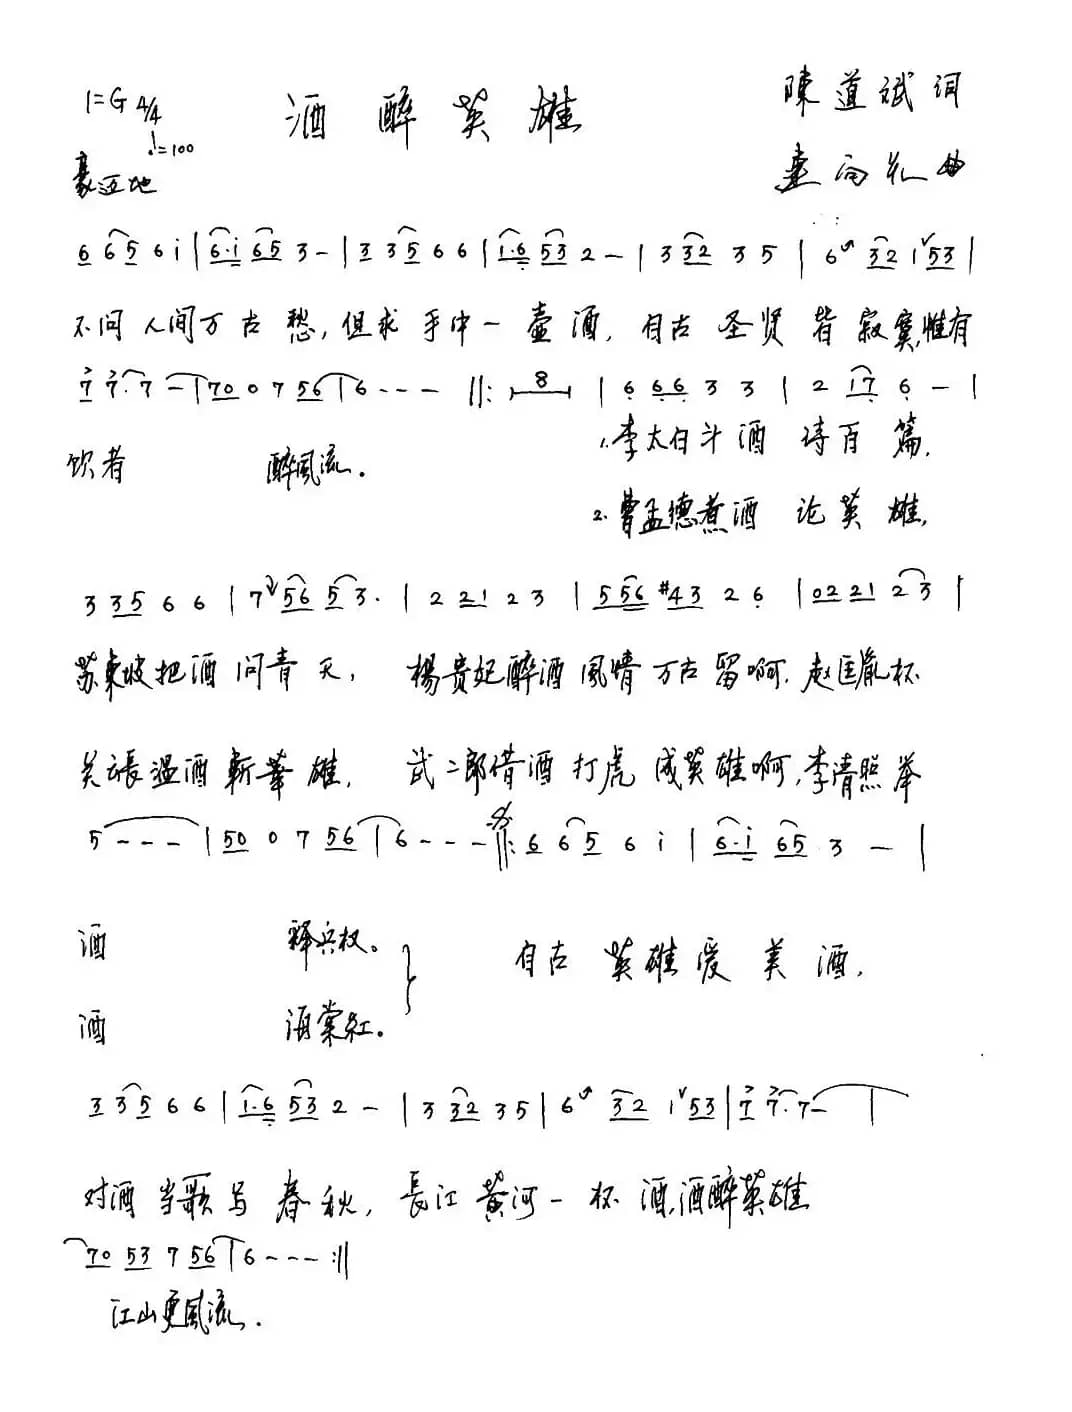 1=G 4/4
酒醉英雄
陳道斌词
♩=100
豪迈地
向礼曲
6 6 5 6 i | 6·i 65 3 - | 3 3 5 6 6 | 1·6 53 2 - | 3 32 3 5 | 6 32 1 53 |
不问人间万古愁,但求手中一壶酒,自古圣贤皆寂寞,惟有
7 7·7 - | 70 0 7 56 | 6 - - - ‖: 8 | 6 66 3 3 | 2 17 6 - |
饮者 醉風流.
1.李太白斗酒 诗百篇,
2.曹孟德煮酒 论英雄,
3 35 6 6 | 7 56 5 3· | 2 21 2 3 | 5 56 #43 2 6 | 02 21 2 3 |
苏東坡把酒问青天, 楊貴妃醉酒風情万古留啊.赵匡胤杯
关張温酒斬華雄, 武二郎借酒打虎成英雄啊,李清照举
5 - - - | 50 0 7 56 | 6 - - - ‖: 6 6 5 6 i | 6·i 65 3 - |
酒 释兵权。
自古英雄爱美酒,
酒 海棠紅。
3 3 5 6 6 | 1·6 53 2 - | 3 32 3 5 | 6 32 1 53 | 7 7·7 - |
对酒当歌写春秋, 長江黄河一杯酒,酒醉英雄
70 53 7 56 | 6 - - - :‖
江山更風流.